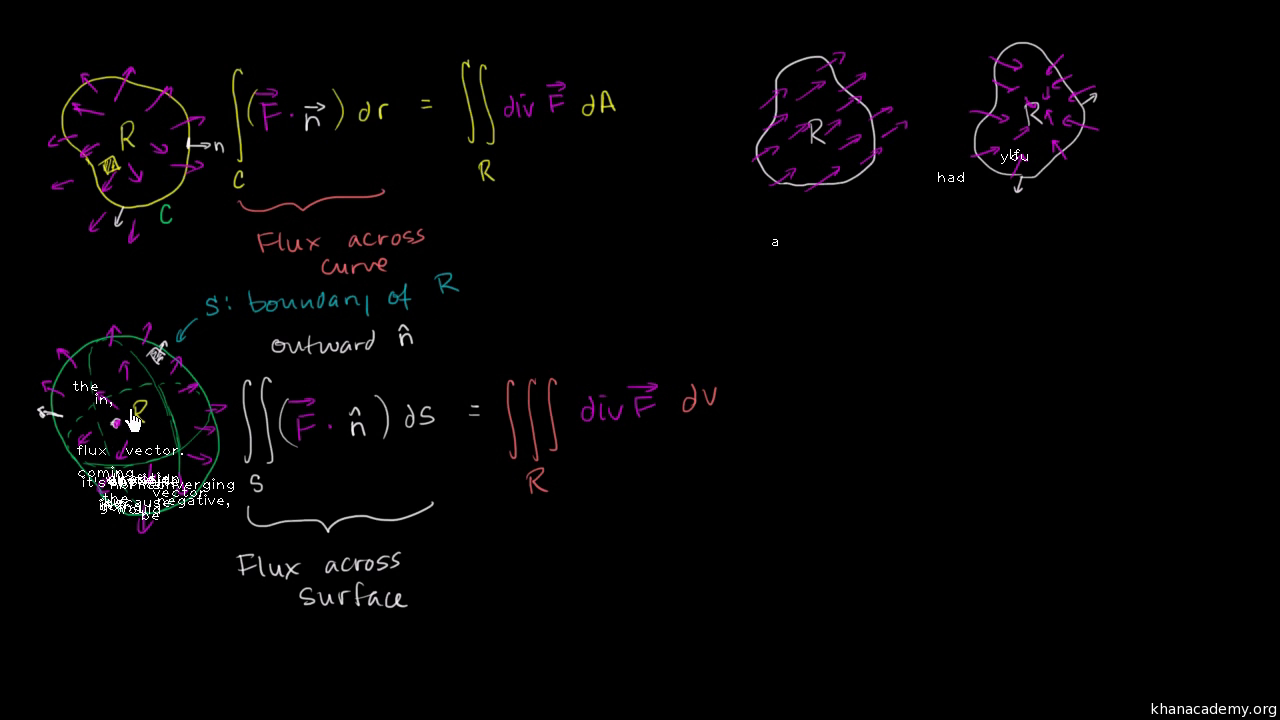 R
n
C
∫_C (F⃗ · n⃗) dr = ∬_R div F⃗ dA
Flux across
curve
R
R
had
a
S: boundary of R
outward n̂
the
in,
R
flux vector.
coming
vector.
negative,
be
∬_S (F⃗ · n̂) ds = ∭_R div F⃗ dv
Flux across
surface
khanacademy.org